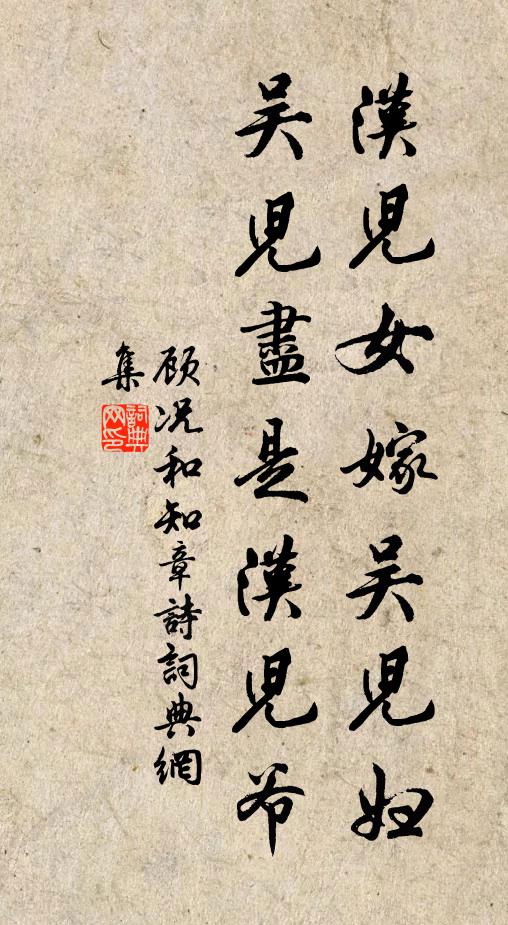 漢兒女嫁吴兒妇
吴兒盡是漢兒爷
顾况和知章詩詞典網
集
詞典
网印